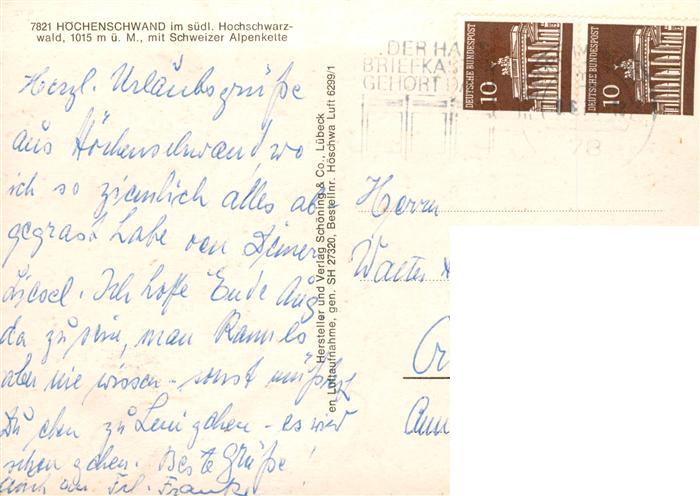 7821 HÖCHENSCHWAND im südl. Hochschwarz-
wald, 1015 m ü. M., mit Schweizer Alpenkette
Herzl. Urlaubsgrüße
aus Höchenschwand wo
ich so ziemlich alles ab-
gegrast habe von Deiner
Liesel. Ich hoffe Ende Aug
da zu sein, man kann es
aber nie wissen - sonst müßtest
Du eben zu Leni gehen - es wird
schon gehen. Beste Grüße!
auch an Frl. Franke
Hersteller und Verlag Schöning & Co., Lübeck
en Luftaufnahme, gen. SH 27320, Bestellnr. Höschwa Luft 6299/1
DER HA
BRIEFKAS
GEHÖRT
78
10 DEUTSCHE BUNDESPOST
10 DEUTSCHE BUNDESPOST
Herrn
Walter